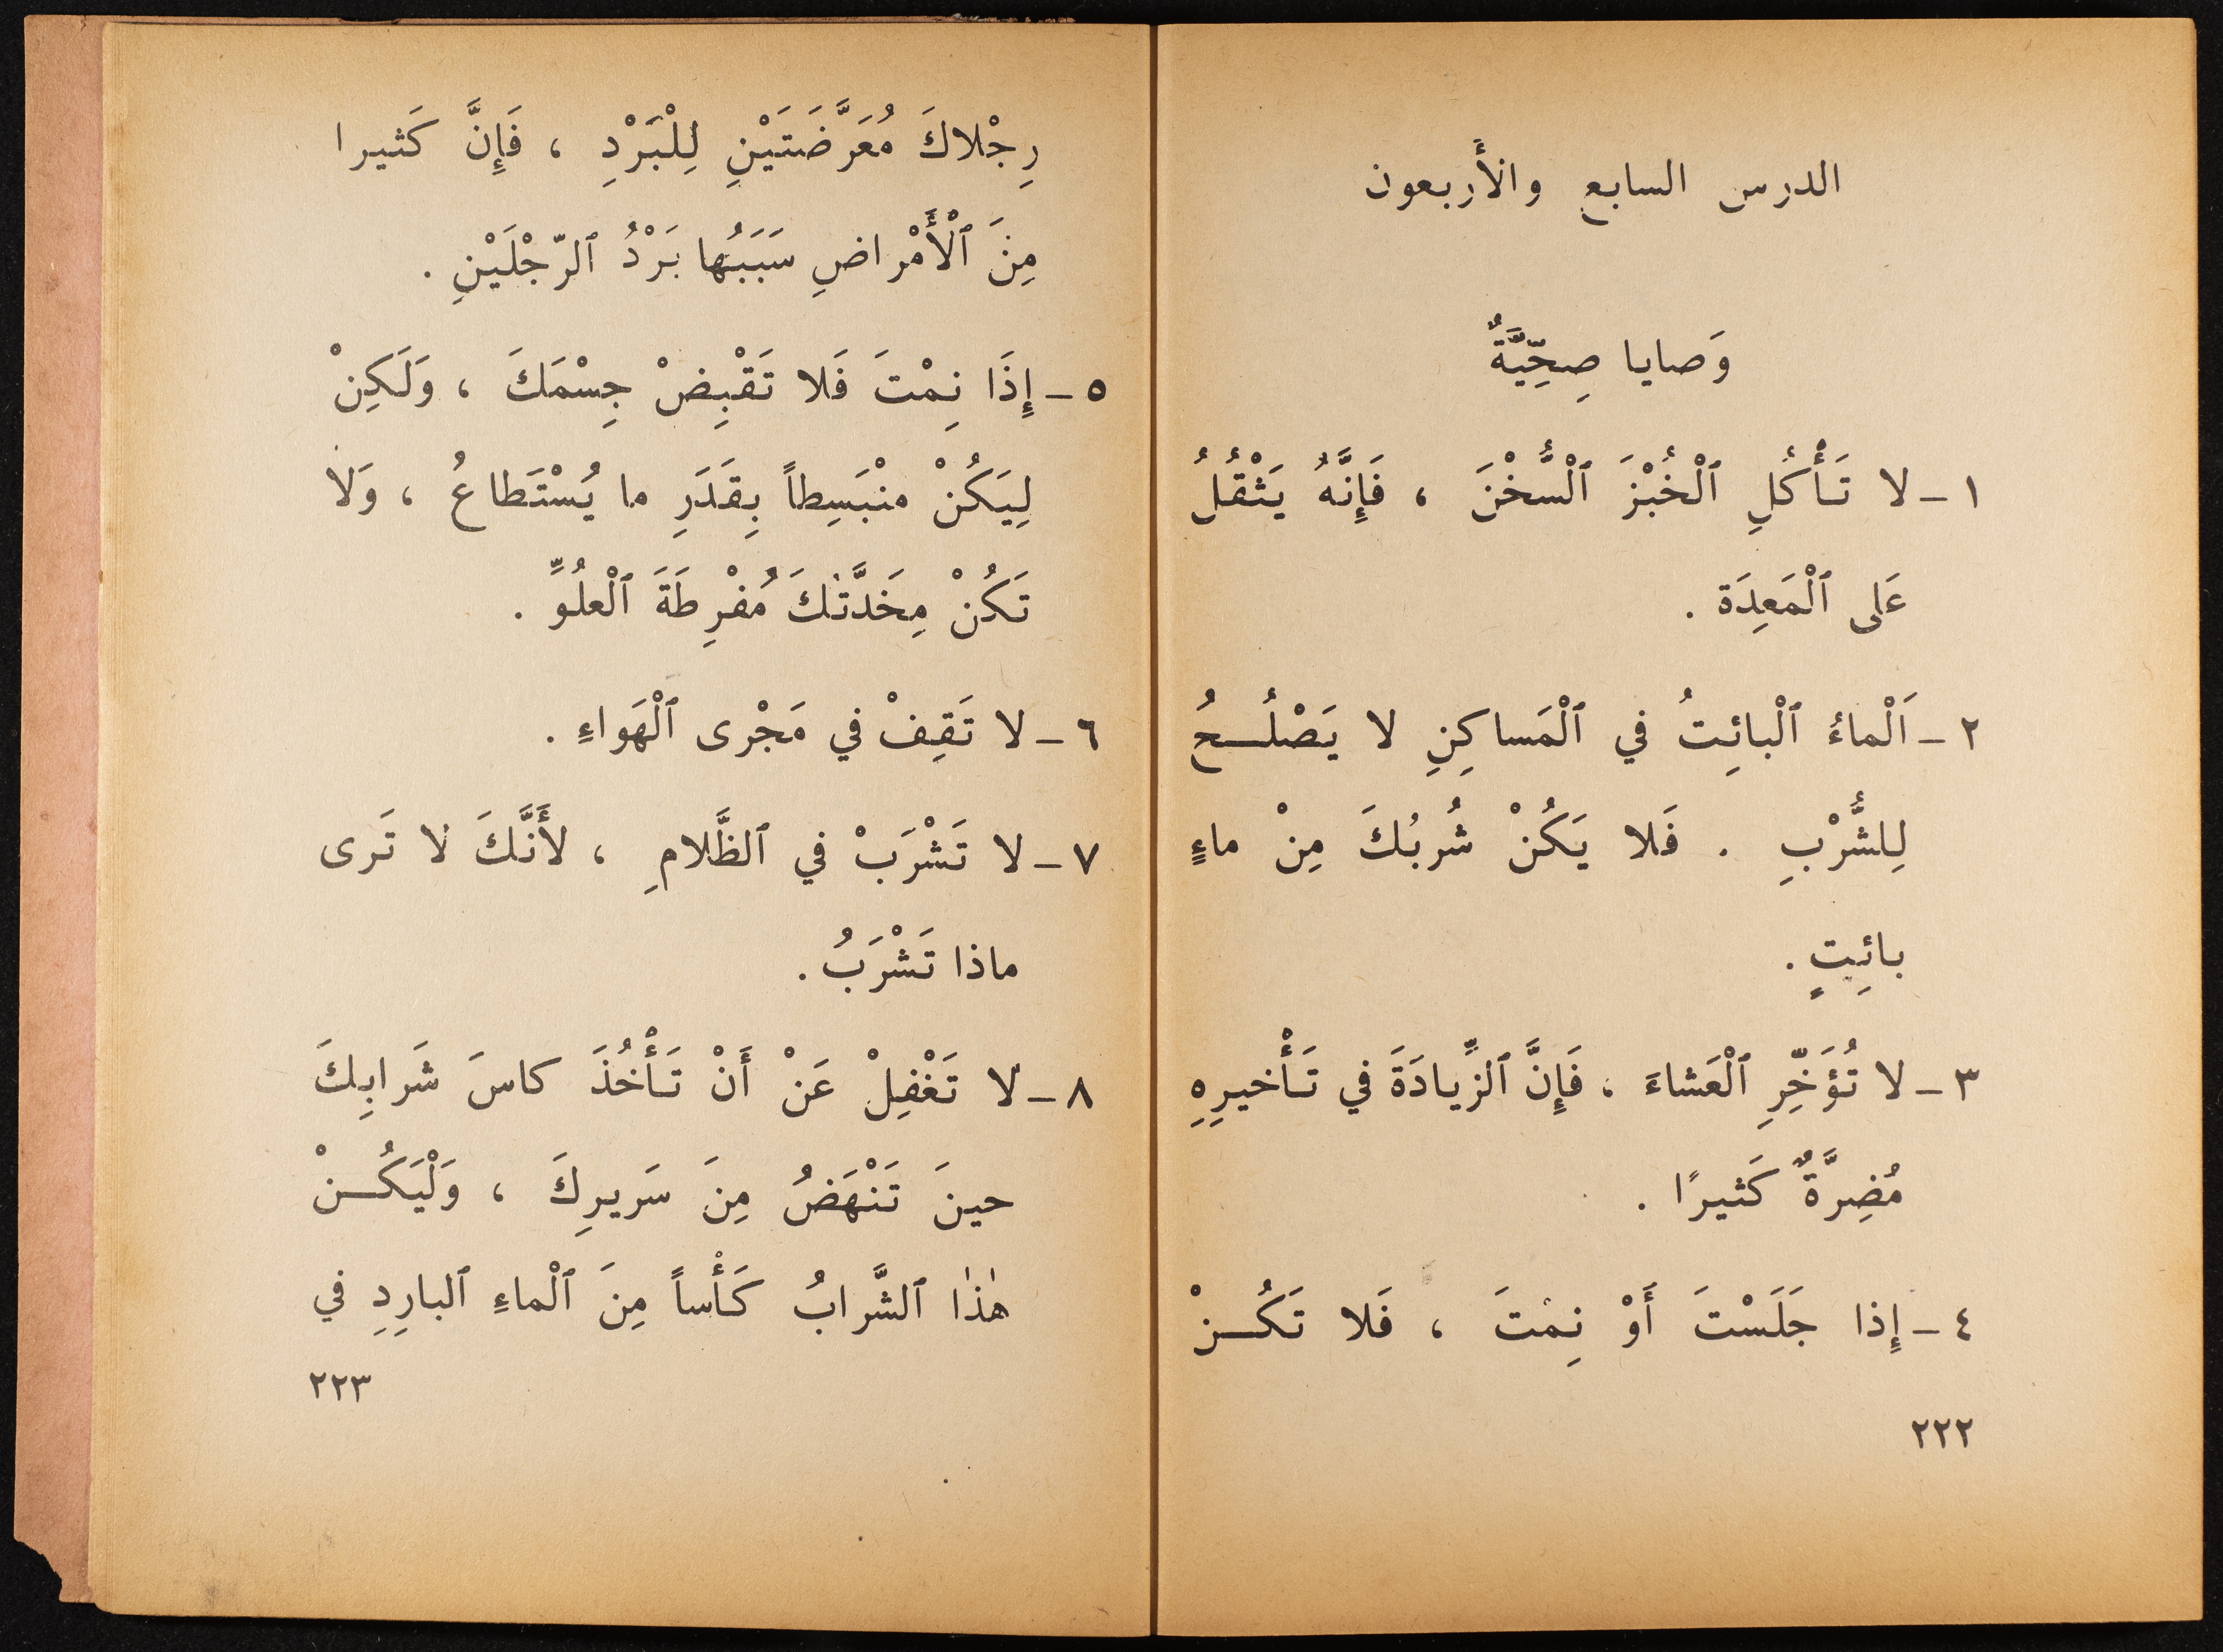 الدرس السابع والأربعون
وَصايا صِحِّيَّةٌ
١ - لا تَأْكُلِ ٱلْخُبْزَ ٱلْسُّخْنَ ، فَإِنَّهُ يَثْقُلُ
عَلى ٱلْمَعِدَة .
٢ - اَلْماءُ ٱلْبائِتُ في ٱلْمَساكِنِ لا يَصْلُـحُ
لِلشُّرْبِ . فَلا يَكُنْ شُربُكَ مِنْ ماءٍ
بائِتٍ .
٣ - لا تُؤَخِّرِ ٱلْعَشاءَ ، فَإِنَّ ٱلزِّيادَةَ في تَأْخيرِهِ
مُضِرَّةٌ كَثيرًا .
٤ - إِذا جَلَسْتَ أَوْ نِمْتَ ، فَلا تَكُـنْ
٢٢٢
رِجْلاكَ مُعَرَّضَتَيْنِ لِلْبَرْدِ ، فَإِنَّ كَثيرا
مِنَ ٱلْأَمْراضِ سَبَبُها بَرْدُ ٱلرّجْلَيْنِ .
٥ - إِذَا نِمْتَ فَلا تَقْبِضْ جِسْمَكَ ، وَلَكِنْ
لِيَكُنْ منْبَسِطاً بِقَدَرِ ما يُسْتَطاعُ ، وَلا
تَكُنْ مِخَدَّتُكَ مُفْرِطَةَ ٱلْعلُوِّ .
٦ - لا تَقِفْ في مَجْرى ٱلْهَواءِ .
٧ - لا تَشْرَبْ في ٱلظَّلامِ ، لأَنَّكَ لا تَرى
ماذا تَشْرَبُ .
٨ - لا تَغْفِلْ عَنْ أَنْ تَأْخُذَ كاسَ شَرابِكَ
حينَ تَنْهَضُ مِنَ سَريرِكَ ، وَلْيَكُـنْ
هٰذٰا ٱلشَّرابُ كَأْساً مِنَ ٱلْماءِ ٱلبارِدِ في
٢٢٣